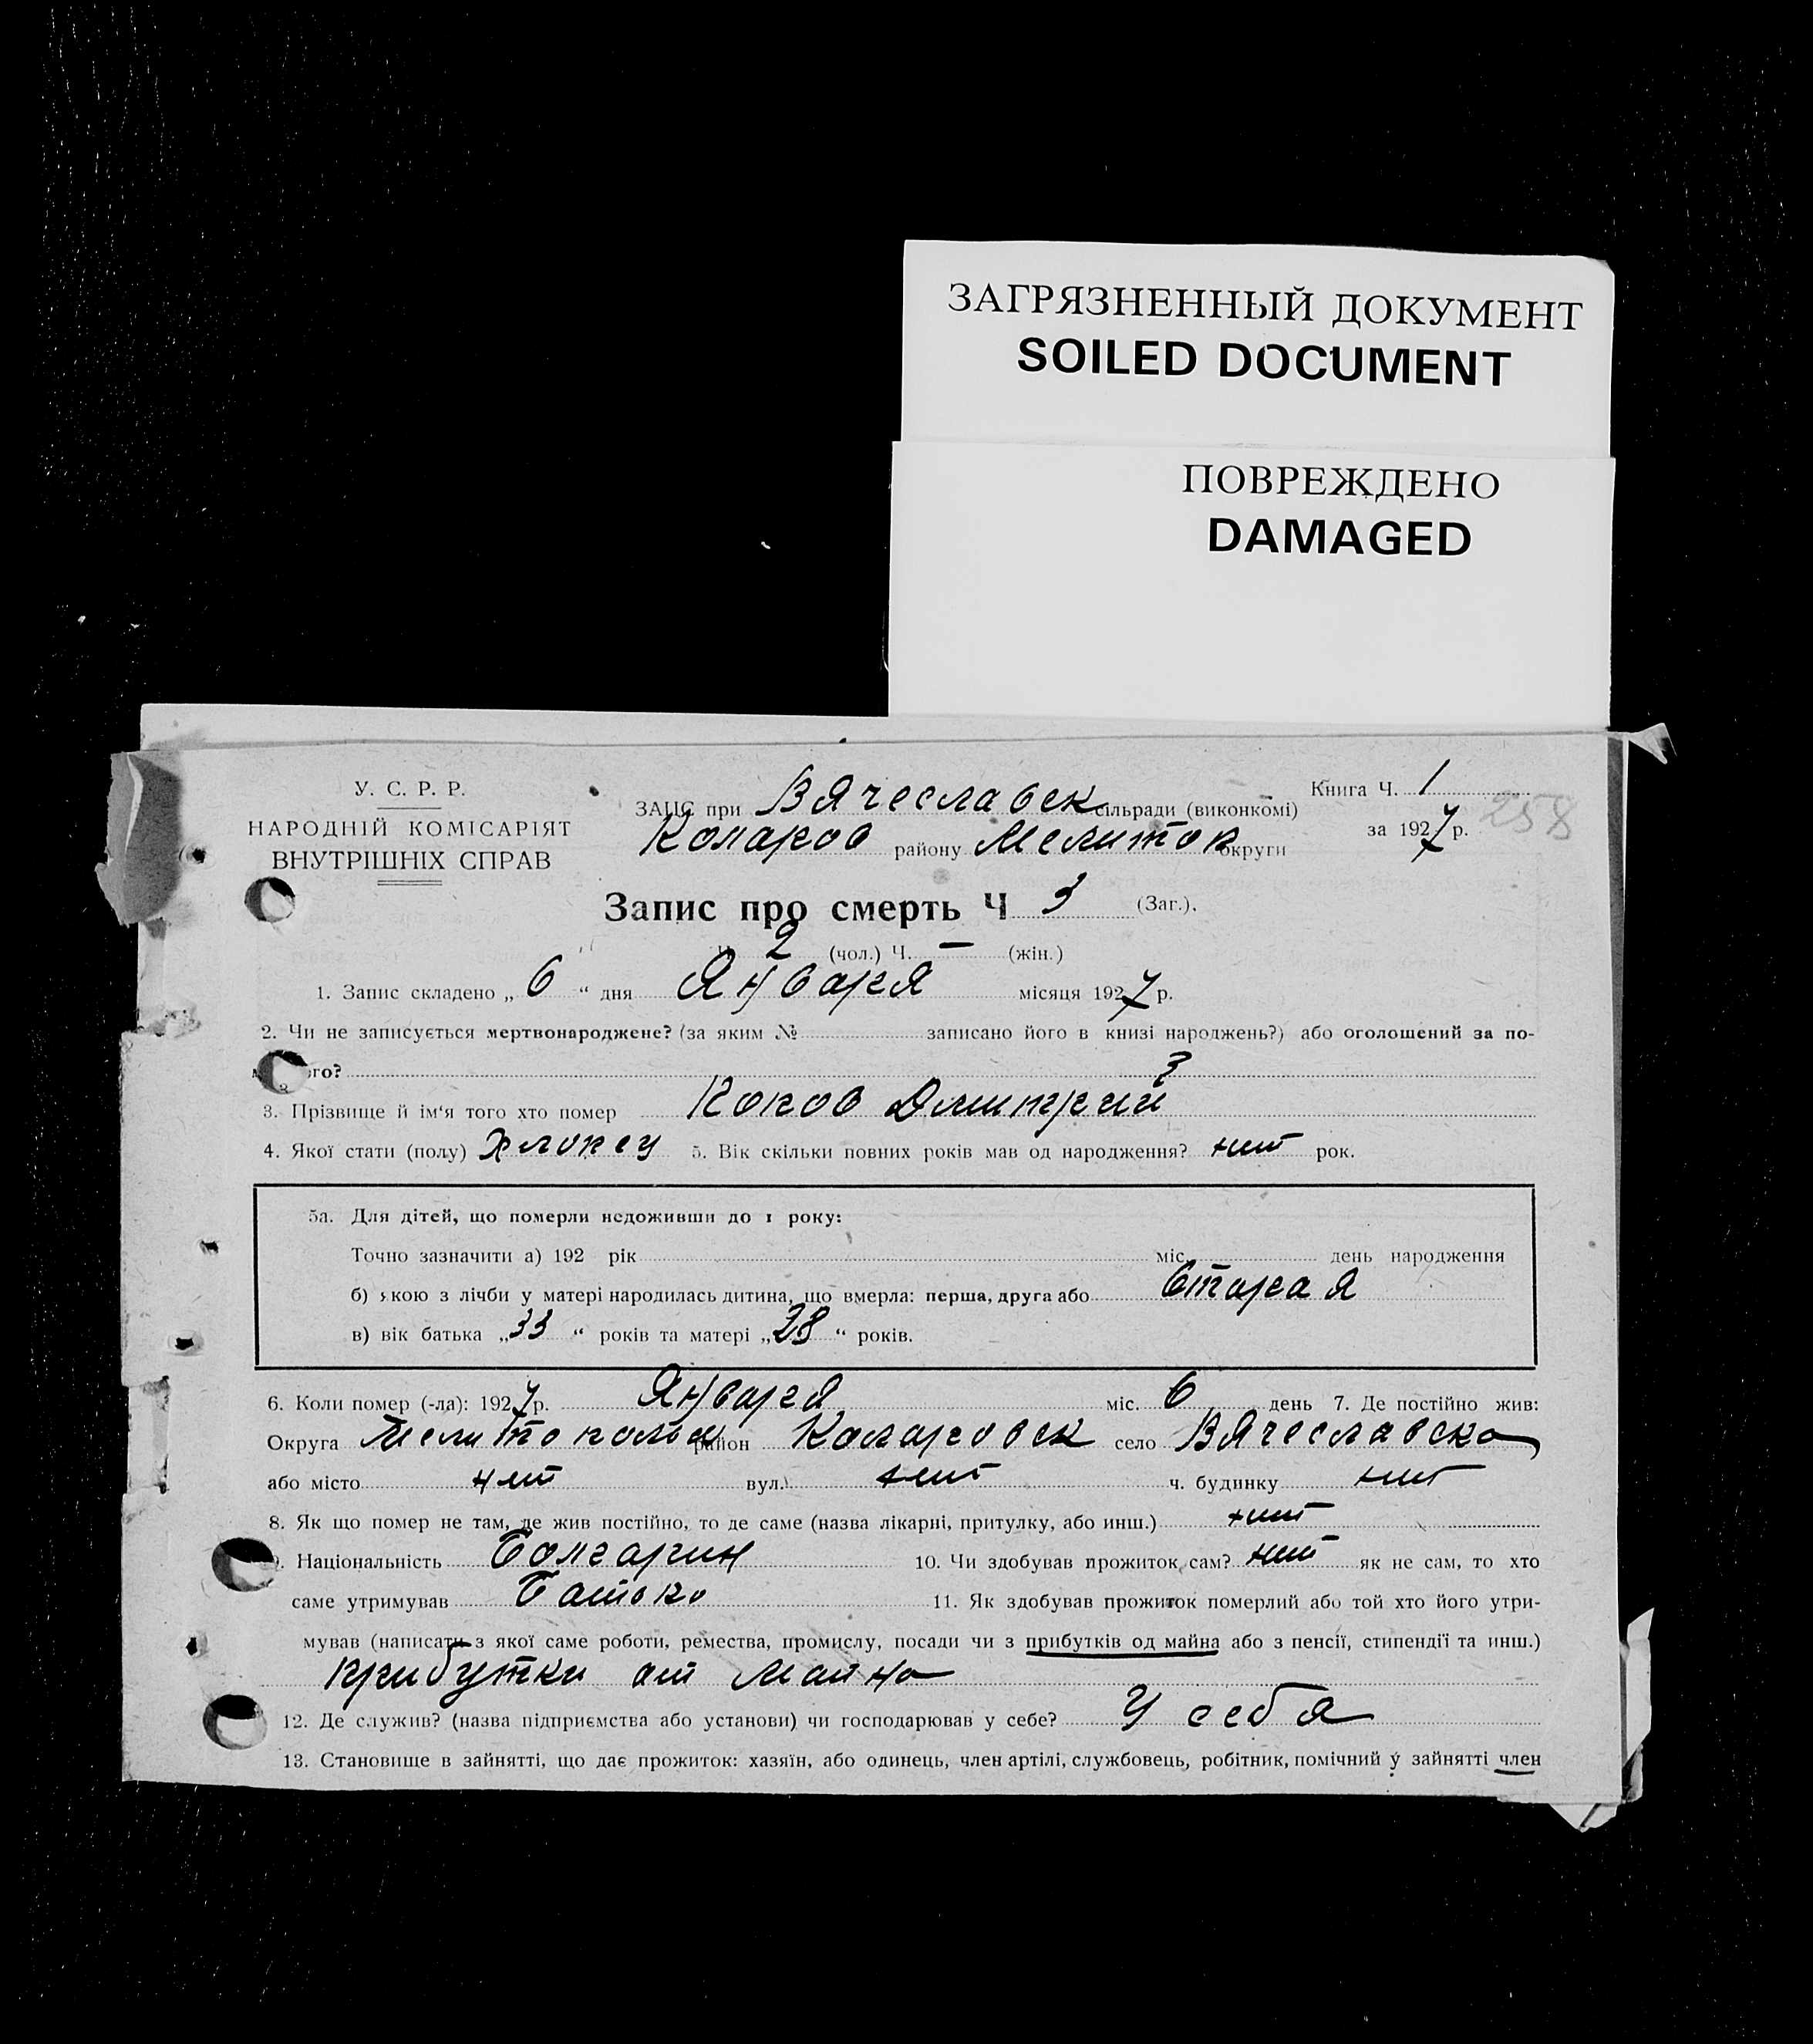 ЗАГРЯЗНЕННЫЙ ДОКУМЕНТ
SOILED DOCUMENT
ПОВРЕЖДЕНО
DAMAGED
У. С. Р. Р.
НАРОДНІЙ КОМІСАРІЯТ
ВНУТРІШНІХ СПРАВ
ЗАЦС при Вячеславск сільради (виконкомі)
Коларов району Мелитоп округи
Книга Ч. 1
за 1927 р. 258
Запис про смерть Ч 3 (Заг.).
2 (чол.) Ч. — (жін.)
1. Запис складено „ 6 “ дня Января місяця 1927 р.
2. Чи не записується мертвонароджене? (за яким № записано його в книзі народжень?) або оголошений за по-
го?
3. Прізвище й ім'я того хто помер Коков Дмитрий
4. Якої стати (полу) Хлопец 5. Вік скільки повних років мав од народження? нит рок.
5а. Для дітей, що померли недоживши до 1 року:
Точно зазначити а) 192 рік міс. день народження
б) якою з лічби у матері народилась дитина, що вмерла: перша, друга або Старая
в) вік батька „33 “ років та матері „28 “ років.
6. Коли помер (-ла): 1927 р. Января міс. 6 день 7. Де постійно жив:
Округа Мелитопольск район Коларовск село Вячеславска
або місто нит вул. нит ч. будинку нит
8. Як що помер не там, де жив постійно, то де саме (назва лікарні, притулку, або инш.) нит
9. Національність Болгарин 10. Чи здобував прожиток сам? нит як не сам, то хто
саме утримував Батько 11. Як здобував прожиток померлий або той хто його утри-
мував (написати з якої саме роботи, ремества, промислу, посади чи з прибутків од майна або з пенсії, стипендії та инш.)
прибутки от майна
12. Де служив? (назва підприємства або установи) чи господарював у себе? У себя
13. Становище в зайнятті, що дає прожиток: хазяїн, або одинець, член артілі, службовець, робітник, помічний у зайнятті член